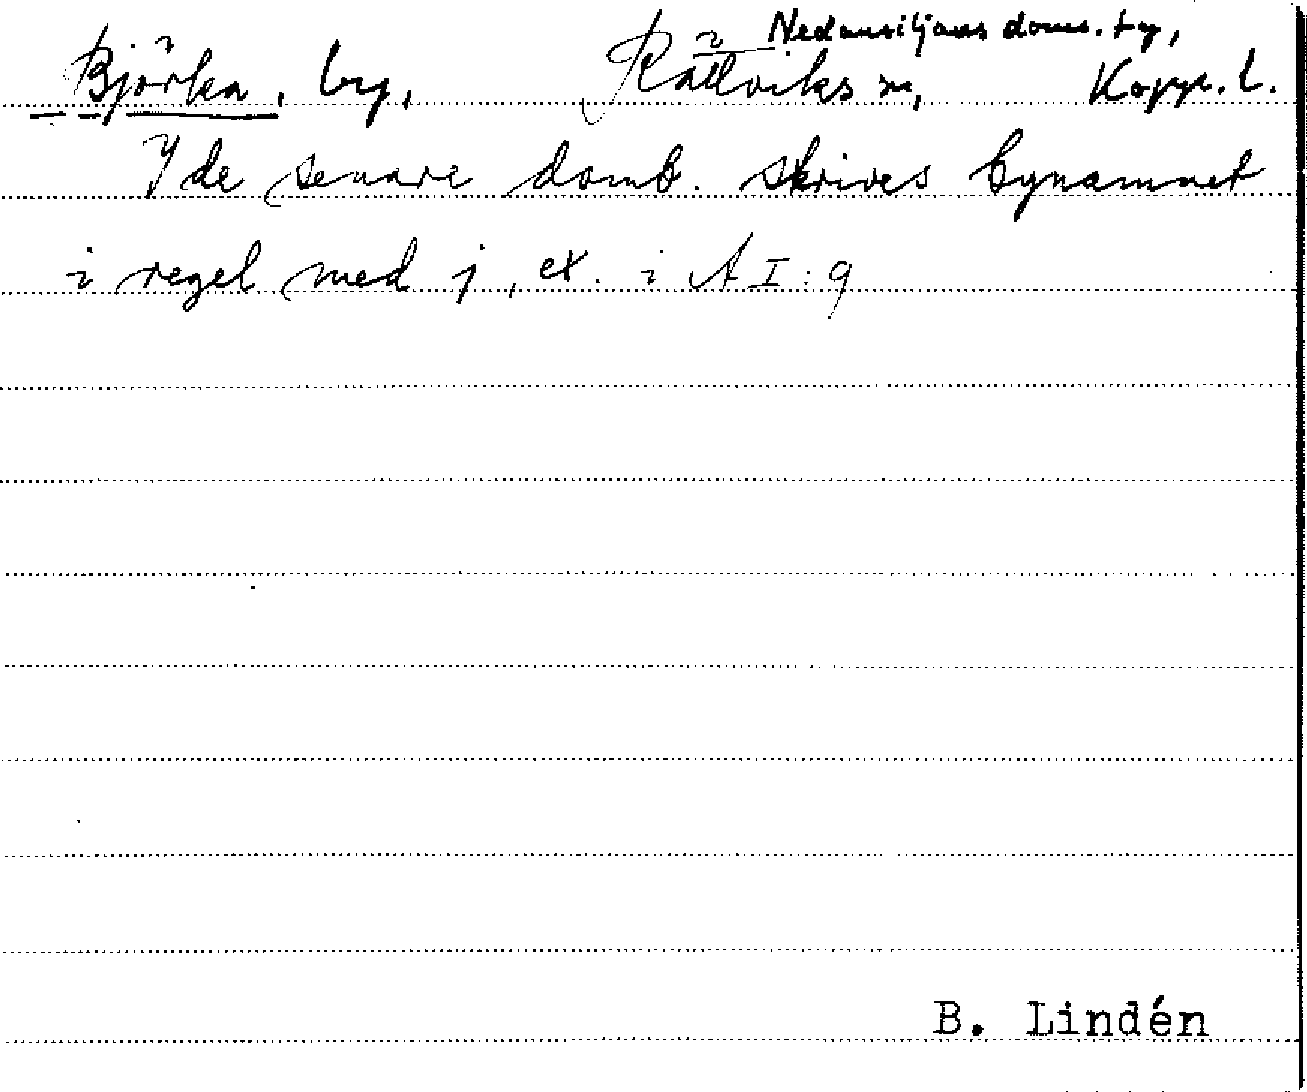 Nedansiljans doms. tg,
Björka, by, Rättviks sn, Kopp. l.
I de senare domb. skrives bynamnet
i regel med j, ex. i A I: 9
B. Lindén